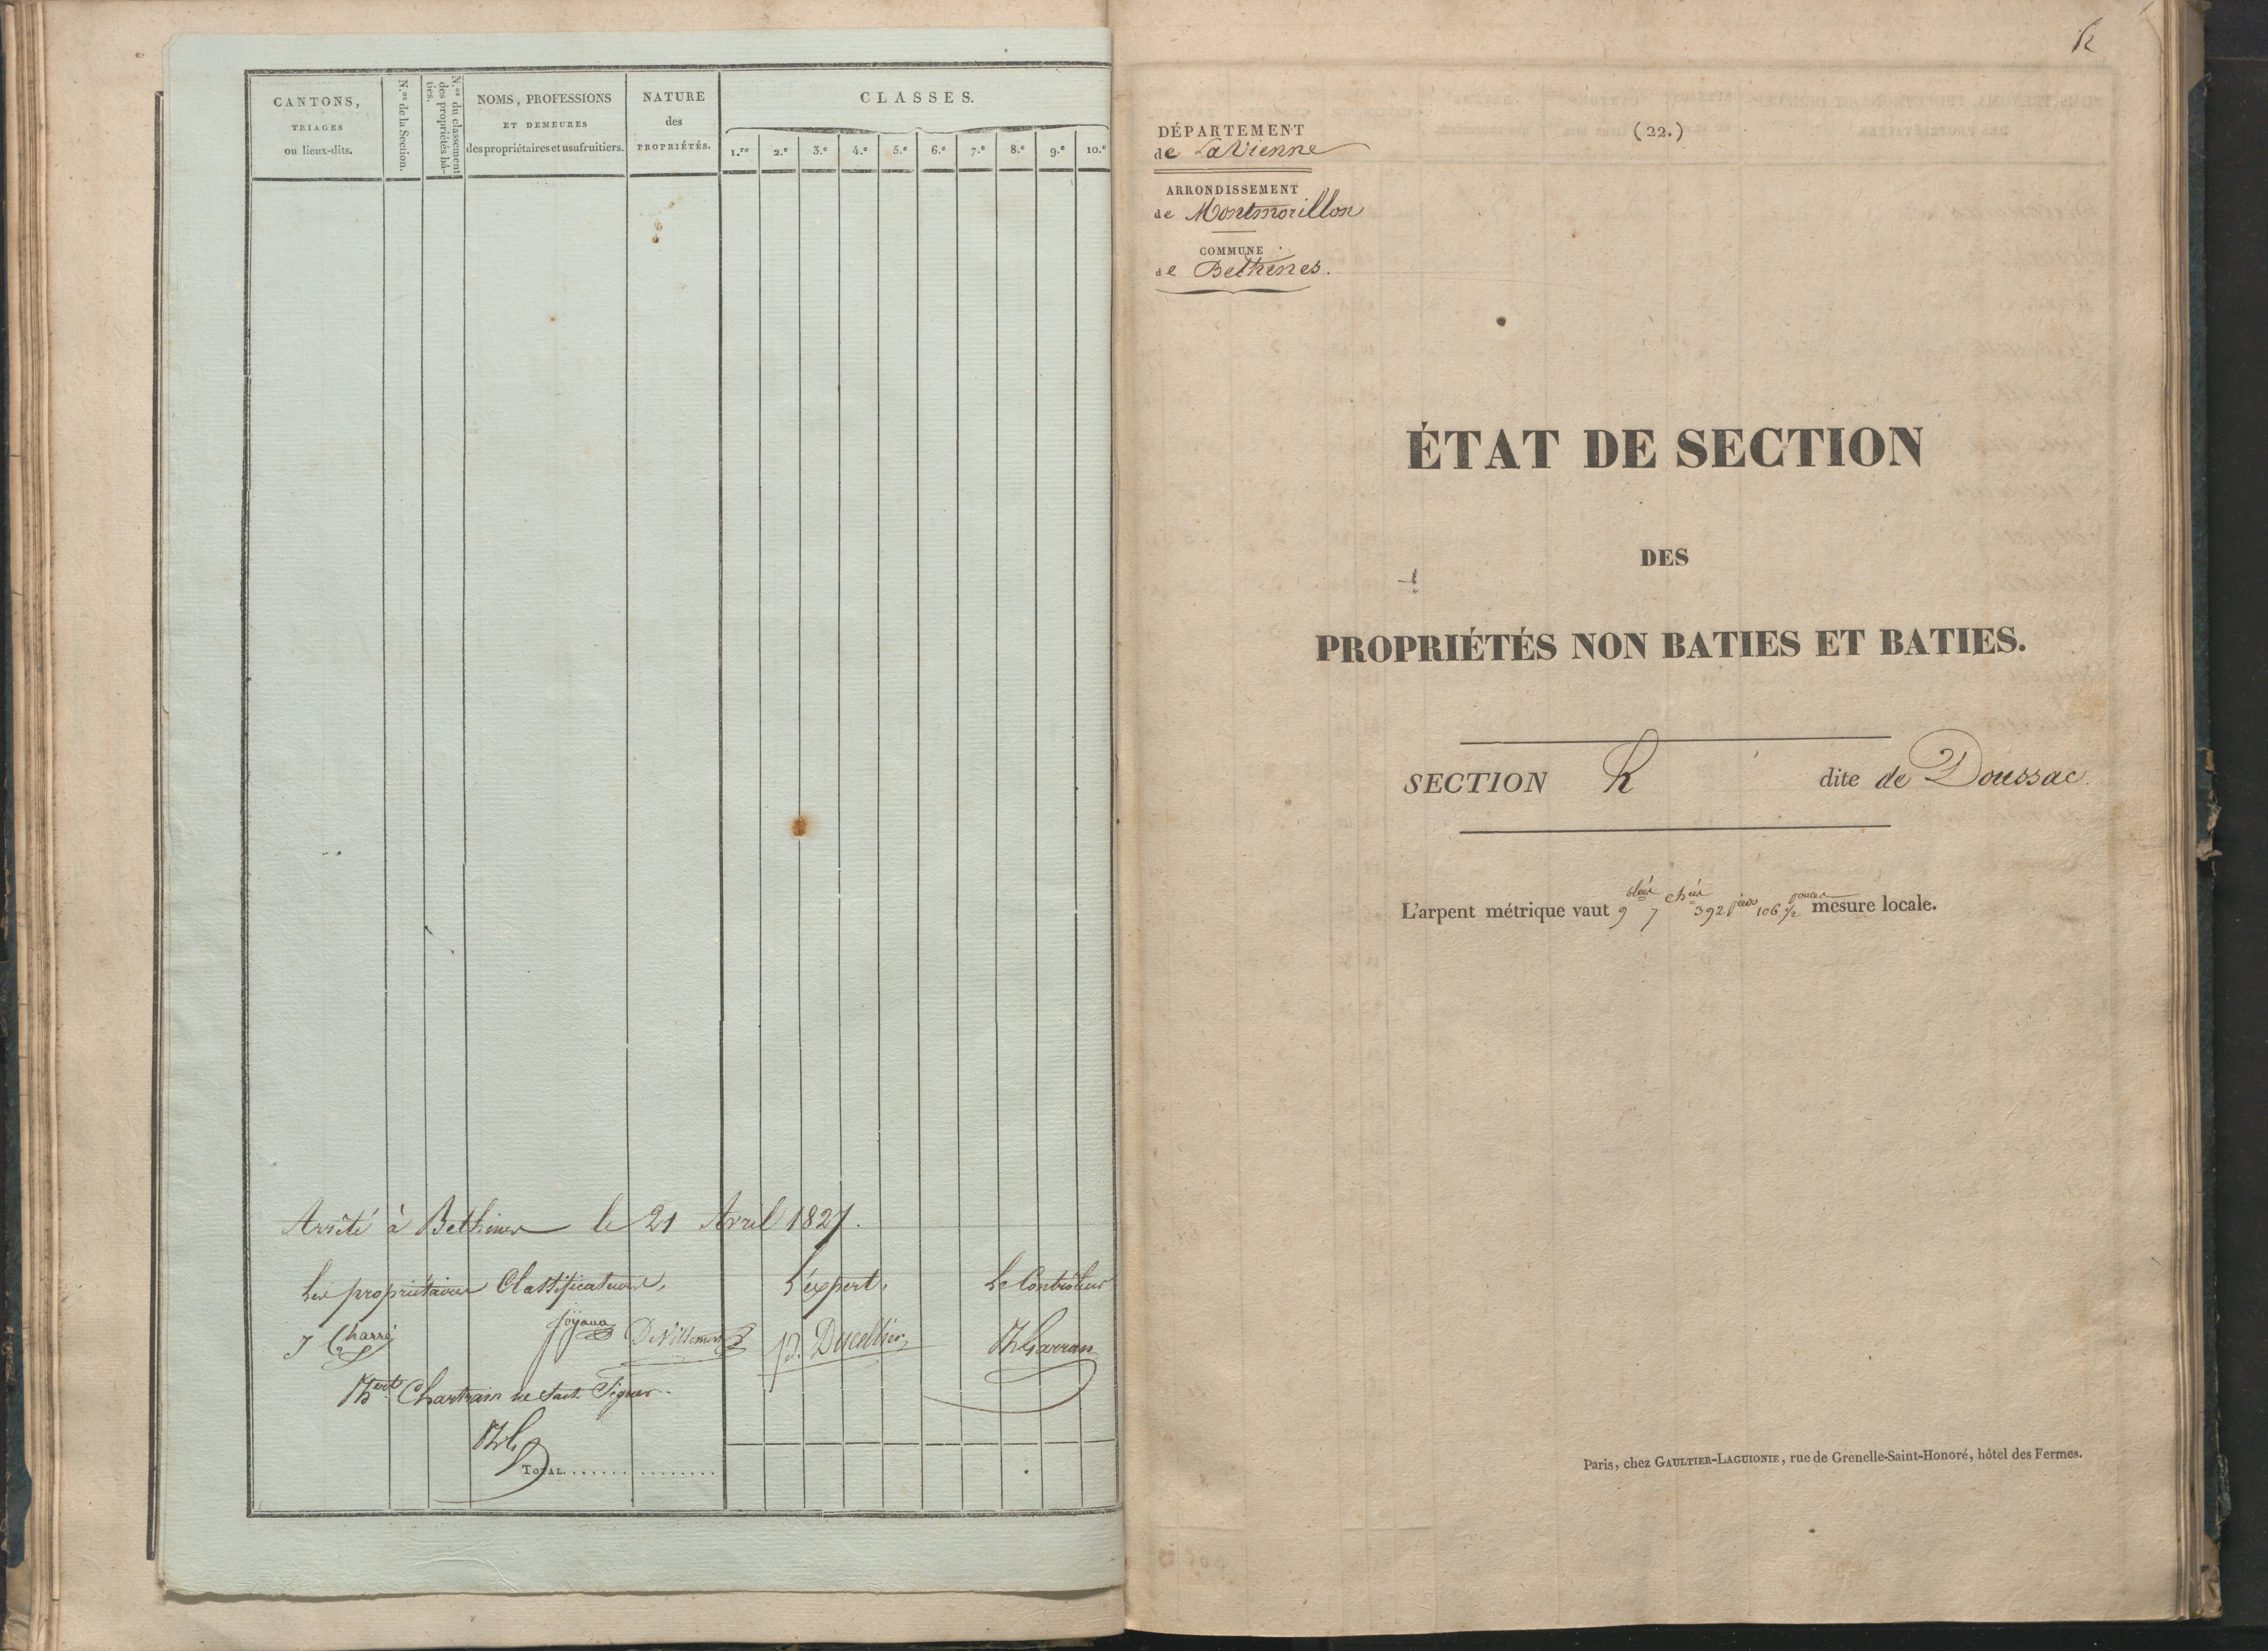 CANTONS,
TRIAGES
ou lieux-dits.
N.os de la Section.
N.os du classement
des propriétés bâ-
ties.
NOMS, PROFESSIONS
ET DEMEURES
des propriétaires et usufruitiers.
NATURE
des
PROPRIÉTÉS.
CLASSES.
1.re 2.e 3.e 4.e 5.e 6.e 7.e 8.e 9.e 10.e
Arrêté à Bethines le 21 Avril 1827.
Les propriétaires Classificateurs, L'expert, Le Contrôleur
J Charré joyaux DeVillemort P. Ducellier Garran
Chartrain ne sait Signer.
TOTAL................
DÉPARTEMENT
de La Vienne
ARRONDISSEMENT
de Montmorillon
COMMUNE
de Bethines.
(22.)
ÉTAT DE SECTION
DES
PROPRIÉTÉS NON BATIES ET BATIES.
SECTION K dite de Doussac.
L'arpent métrique vaut 9 7 392 pieds 106 1/2 pouces mesure locale.
Paris, chez GAULTIER-LAGUIONIE, rue de Grenelle-Saint-Honoré, hôtel des Fermes.